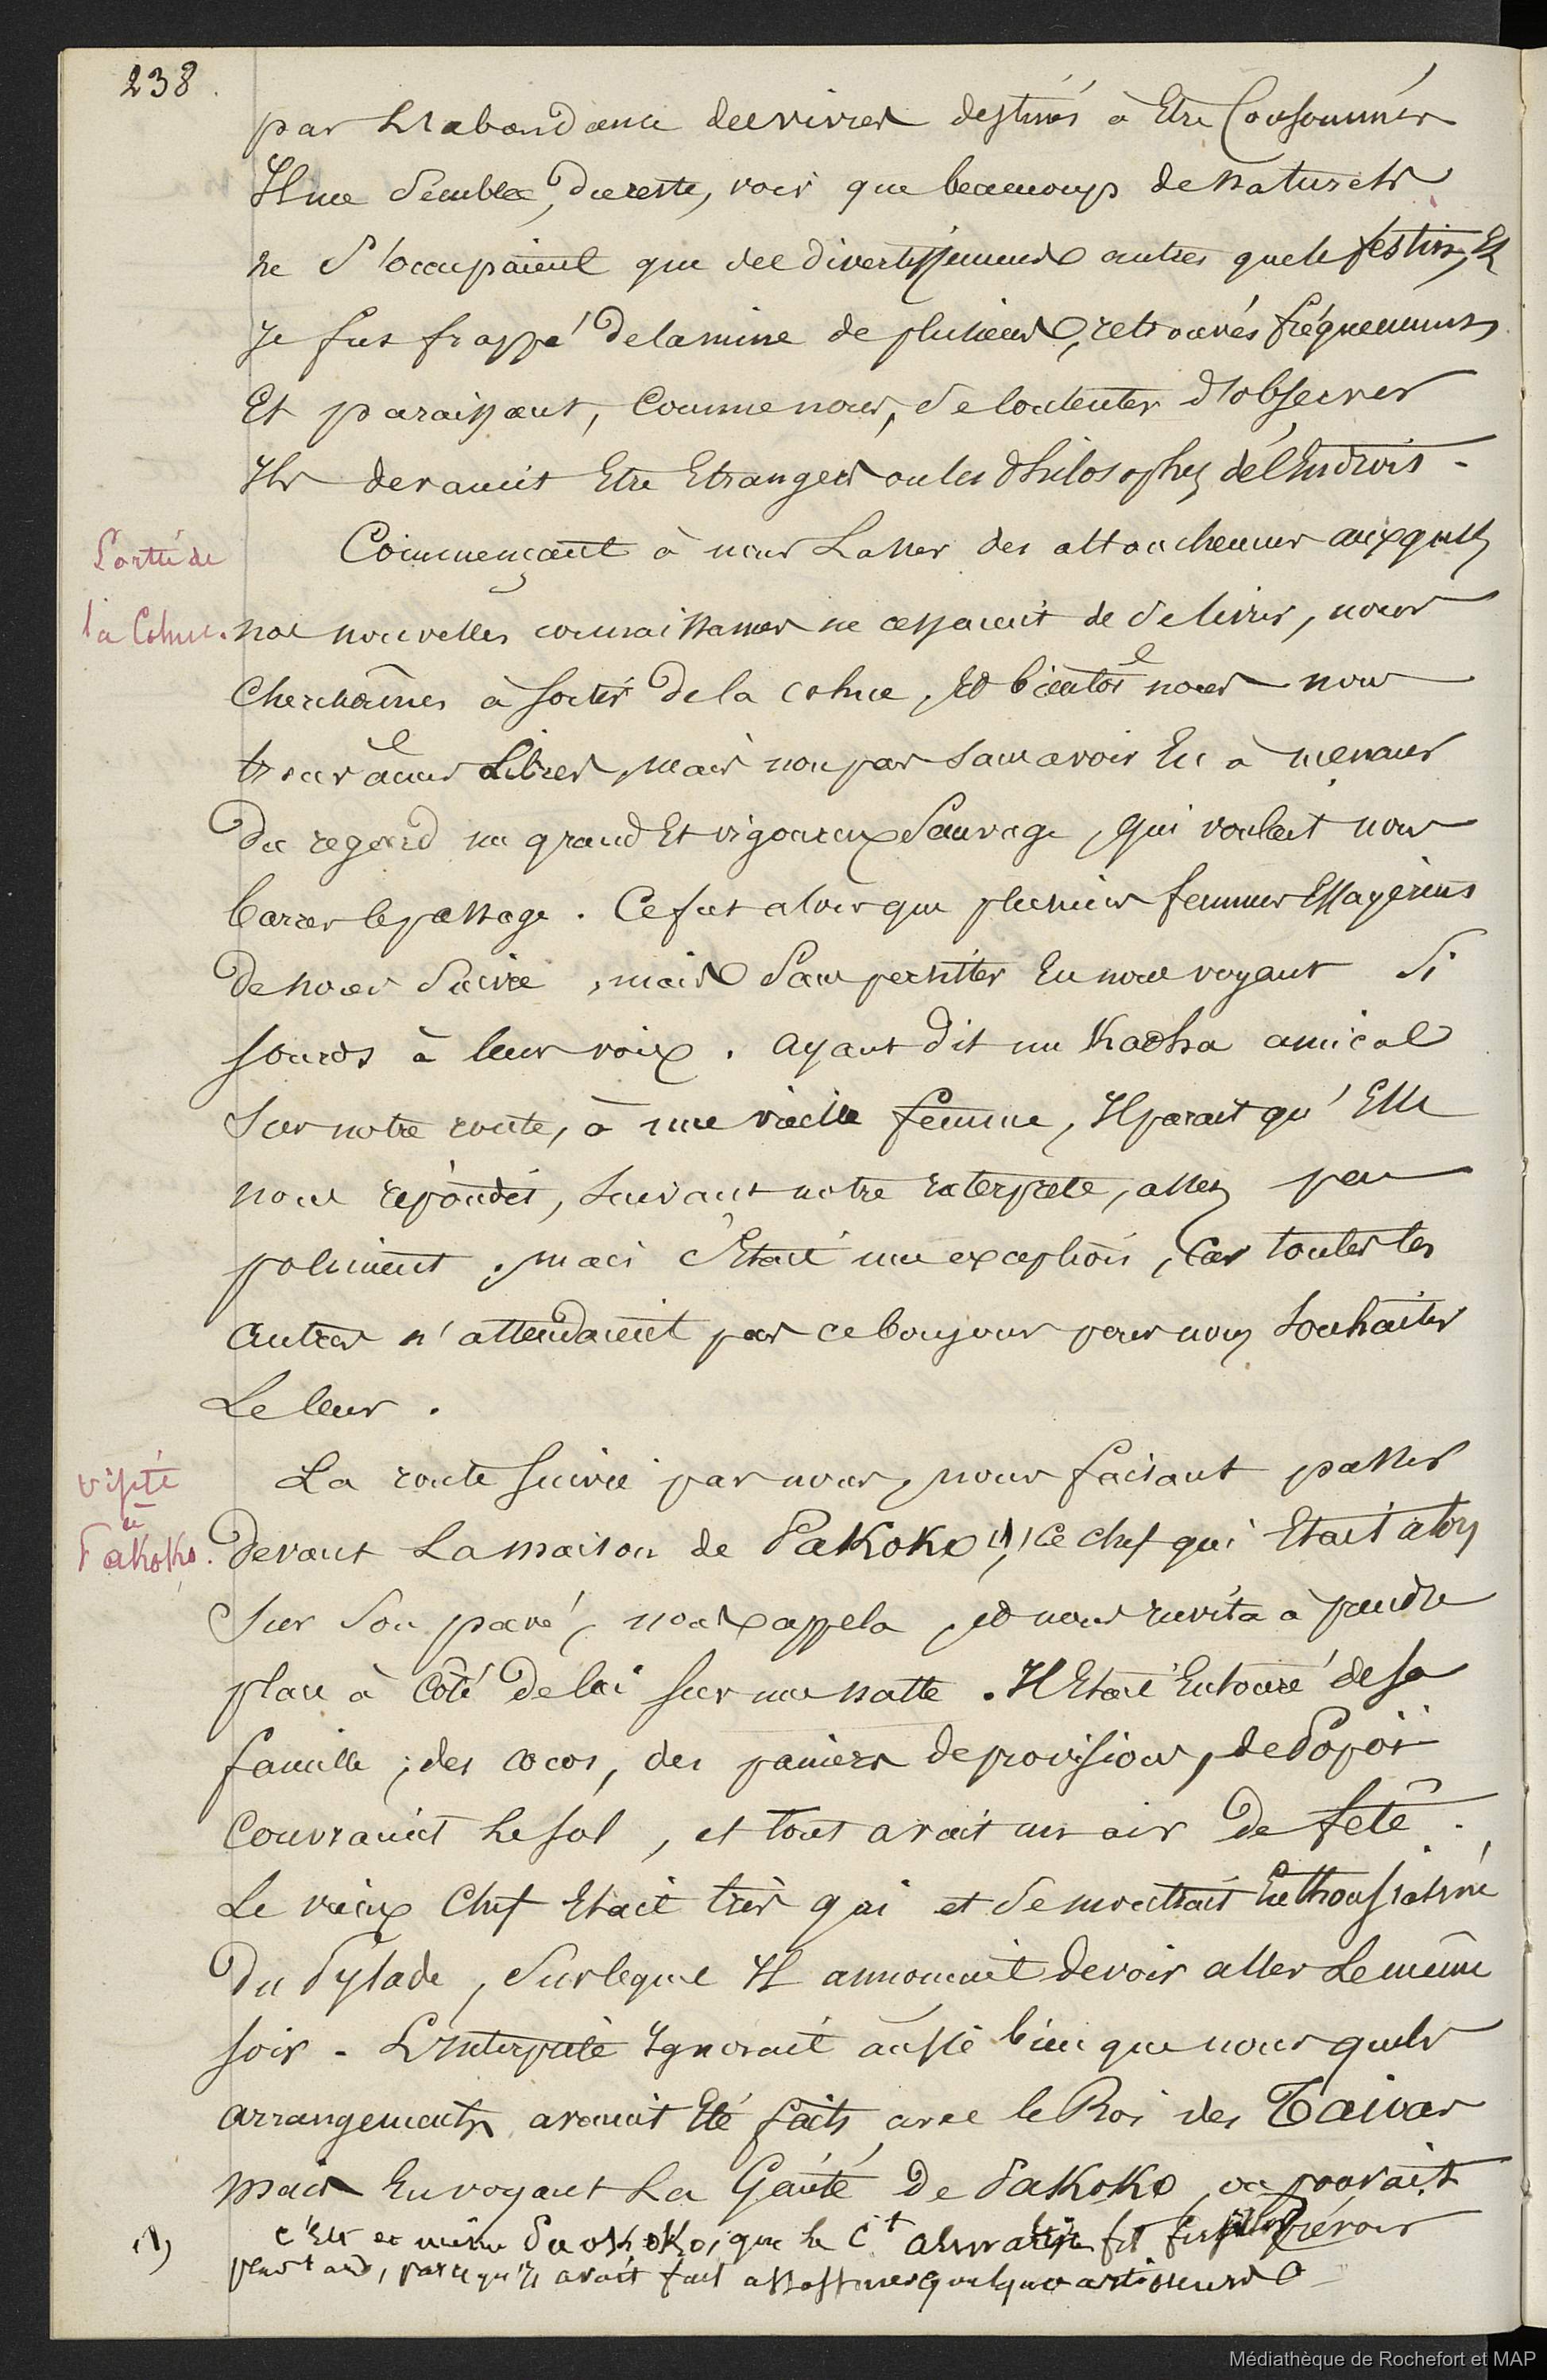 238.
par L'abondance des vivres destinés à Etre Consommés
Il me Semble, du reste, voir que beaucoup de naturels
ne S'occupaient que de divertissements autres que le festin, Et
Je fus frappé de la mine de plusieurs, retrouvés fréquemment
Et paraissant, Comme nous, Se Contenter d'observer
Ils devaient Etre Etrangers ou les Philosophes de l'Endroit -
Sortie de
la Cohue.
Commençant à nous Lasser des attouchements auxquels
nos nouvelles connaissances ne cessaient de Se livrer, nous
Cherchâmes à Sortir de la cohue, Et bientôt nous nous
trouvâmes Libres, mais non pas Sans avoir Eu à menacer
du regard un grand Et vigoureux Sauvage, qui voulait nous
barrer le passage. Ce fut alors que plusieurs femmes Essayèrent
de nous Suivre, mais Sans persister En nous voyant Si
Sourds à leur voix. Ayant dit un Kaoha amical
Sur notre route, à une vieille femme, Il parait qu'Elle
nous répondit, Suivant notre interprète, assez peu
poliment, mais c'Etait une exception, Car toutes les
autres n'attendaient pas ce bonjour pour nous Souhaiter
Le leur.
visite
à
Pakoko.
La route Suivie par nous, nous faisant passer
devant La maison de Pakoko (1), ce chef qui Etait alors
Sur Son pavé, nous appela, et nous invita à prendre
place à Côté de lui Sur une natte. Il Etait Entouré de Sa
famille; des cocos, des paniers de provisions, de Popoï
Couvraient Le Sol, et tout avait un air de fête.
Le vieux Chef Etait très gai et Se montrait Enthousiasmé
du Pylade, Sur lequel Il annonçait devoir aller Le même
Soir. L'Interprète Ignorait aussi bien que nous quels
arrangements avaient Eté faits avec le Roi des Taïoas
mais En voyant La Gaîté de Pakoko, on pouvait
prévoir
(1) C'Est ce même Pakoko, que le Ct Almaric fit fusiller
plus tard, parce qu'il avait fait assassiner quelques artilleurs
Médiathèque de Rochefort et MAP